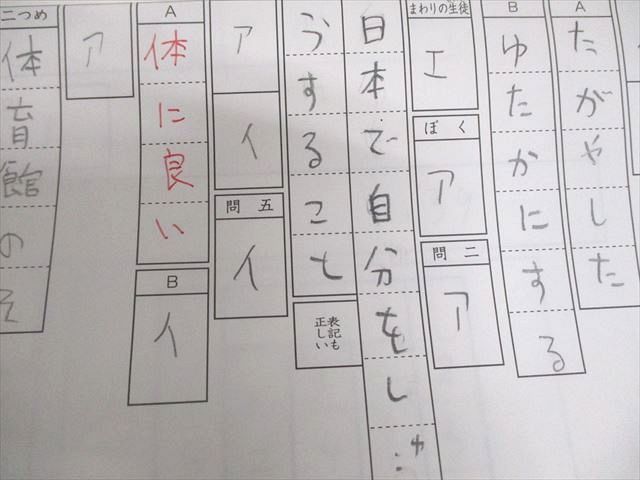 A
たがやした
B
ゆたかにする
まわりの生徒
エ
ぼく
ア
問二
ア
日本で自分をし
うすること
表記も
正しい
ア
イ
問五
イ
A
体に良い
B
イ
ア
二つめ
体育館のそ